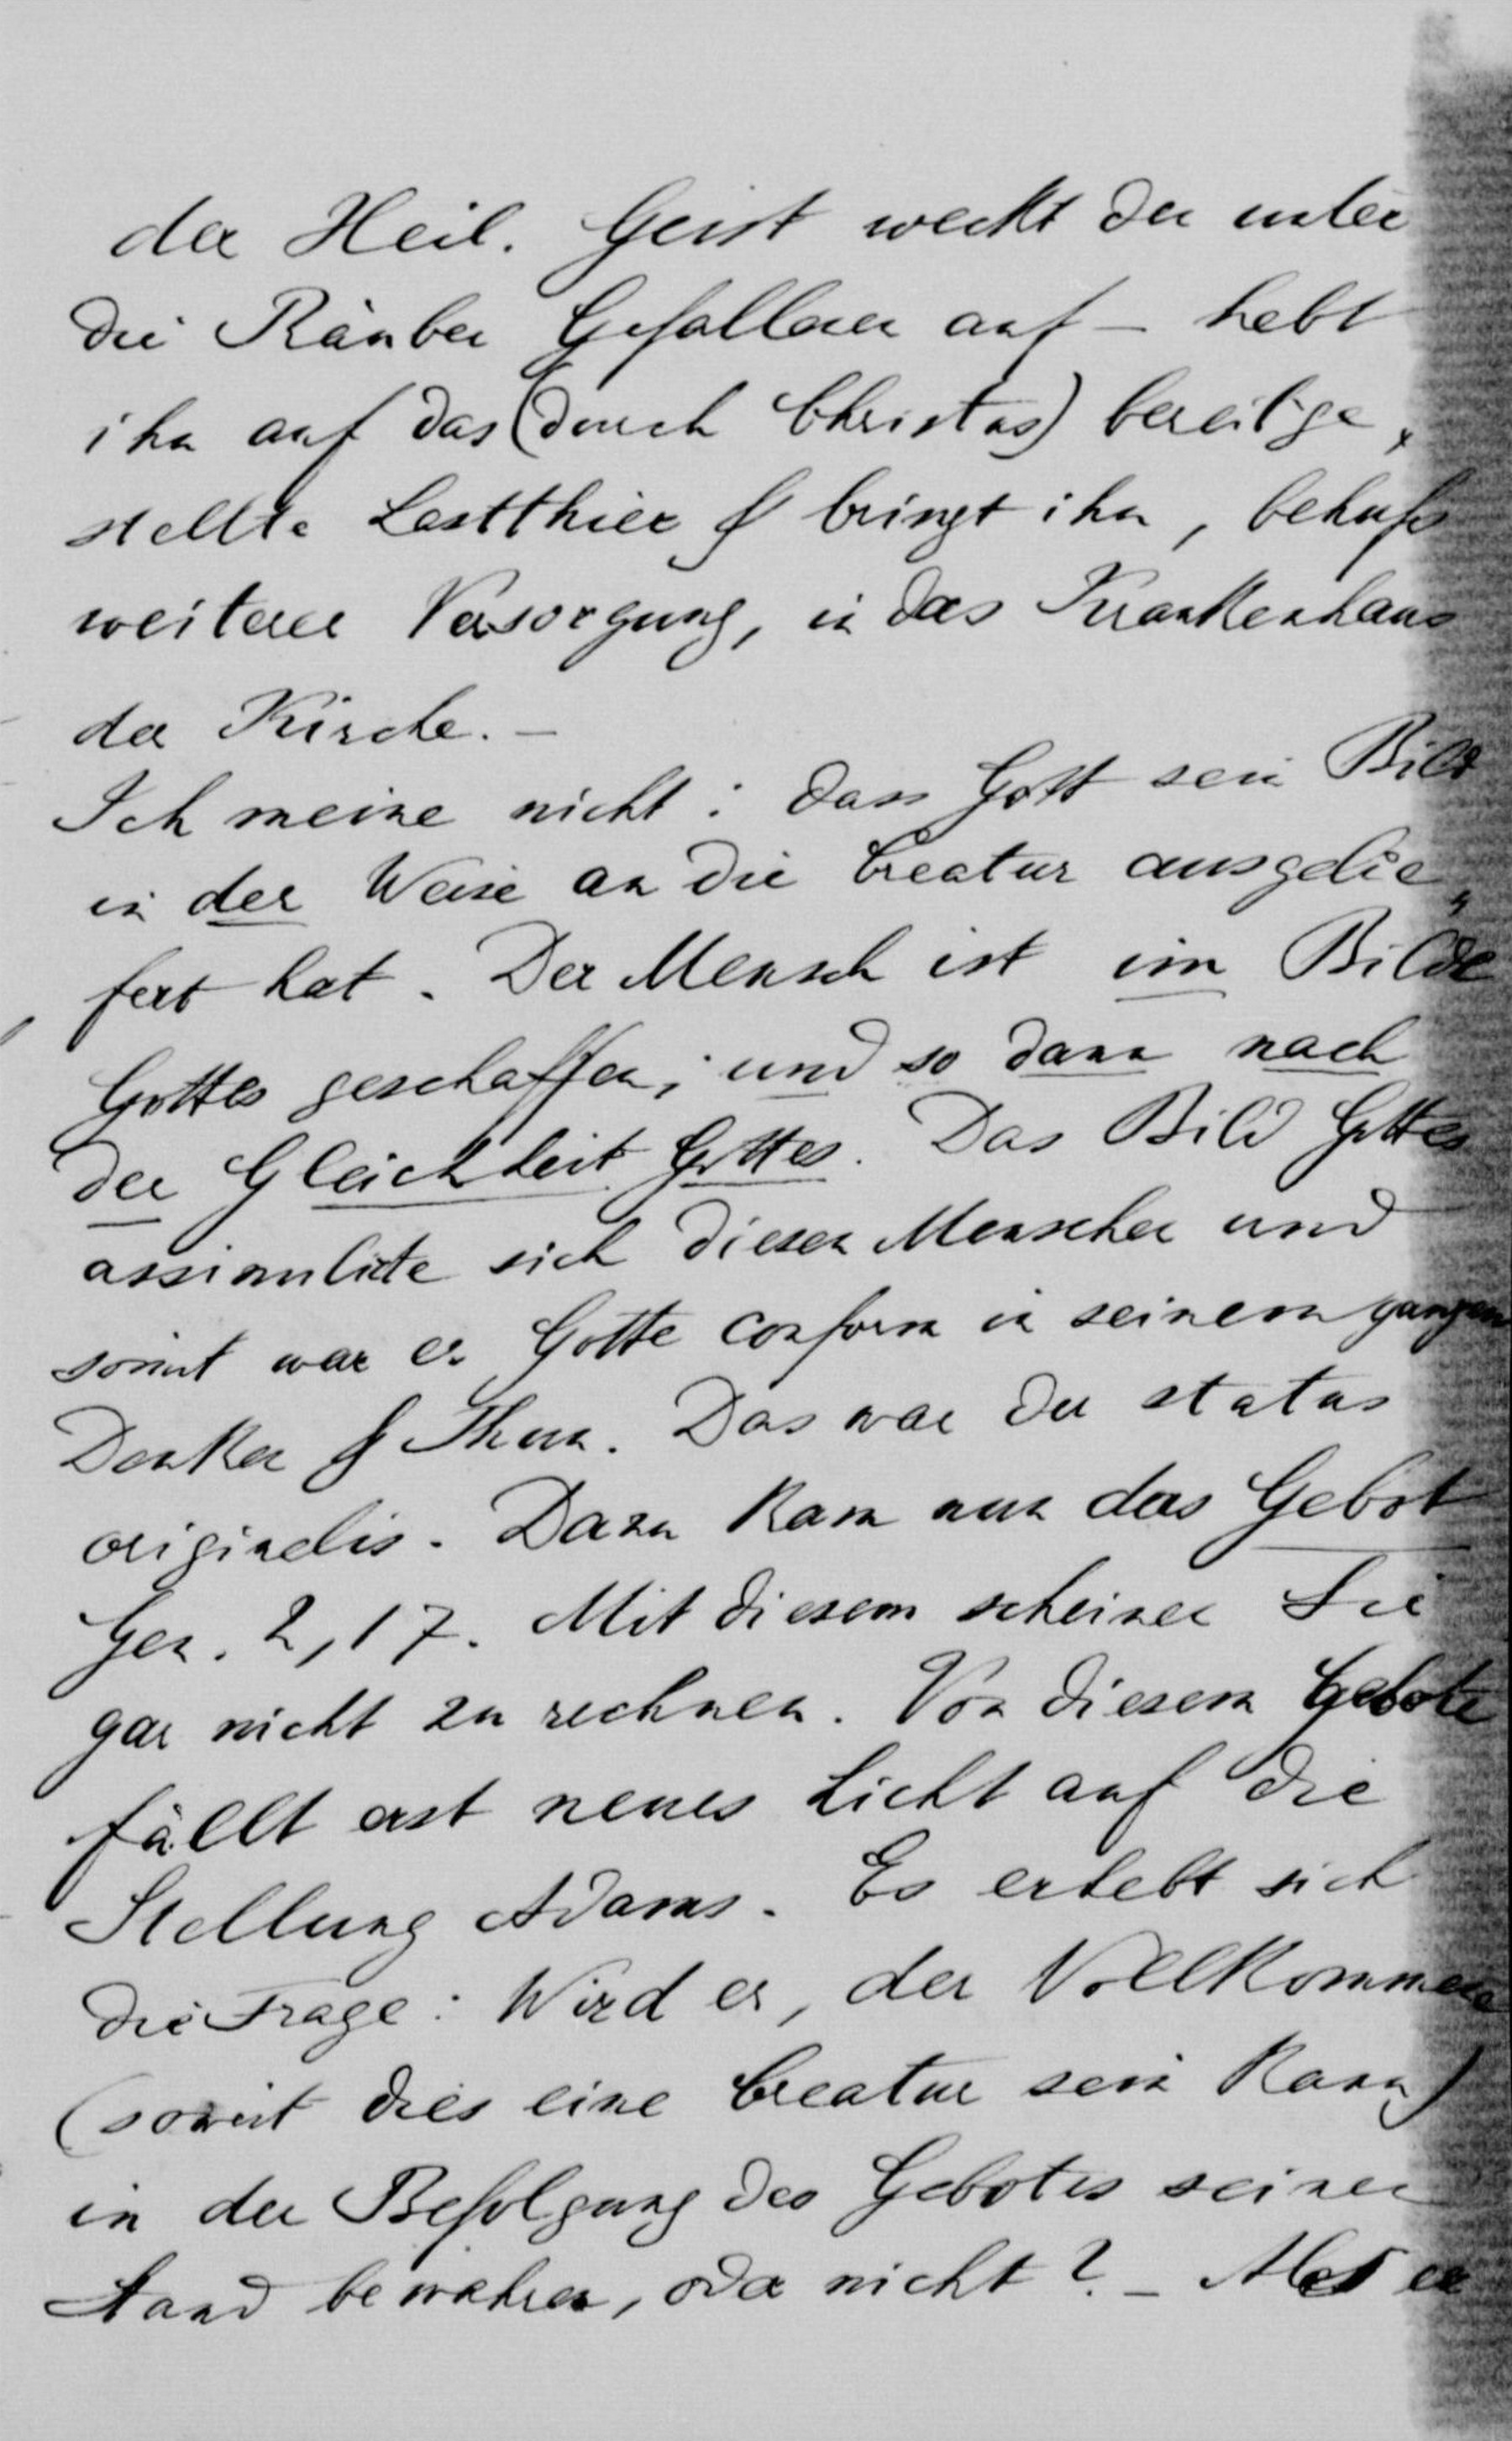 der Heil. Geist weckt den unter
die Räuber Gefallenen auf – hebt
ihn auf das (durch Christus) bereitge„
stellte Lastthier & bringt ihn, behufs
weiterer Versorgung, in das Krankenhaus
der Kirche. –
Ich meine nicht: dass Gott sein Bild
in der Weise an die Creatur ausgelie„
fert hat. Der Mensch ist im Bilde
Gottes geschaffen; und so dann nach
der Gleichheit Gottes. Das Bild Gottes
assimilirte sich diesen Menschen und
somit war er Gotte conform in seinem ganzen
Denken & Thun. Das war der status
originalis. Dazu kam nun das Gebot
Gen. 2, 17. Mit diesem scheinen Sie
gar nicht zu rechnen. Von diesem Gebote
fällt erst neues Licht auf die
Stellung Adams. Es erhebt sich
die Frage: Wird er, der Vollkommene
(soweit dies eine Creatur sein kann)
in der Befolgung des Gebotes seinen
Stand bewahren, oder nicht? – Aber er